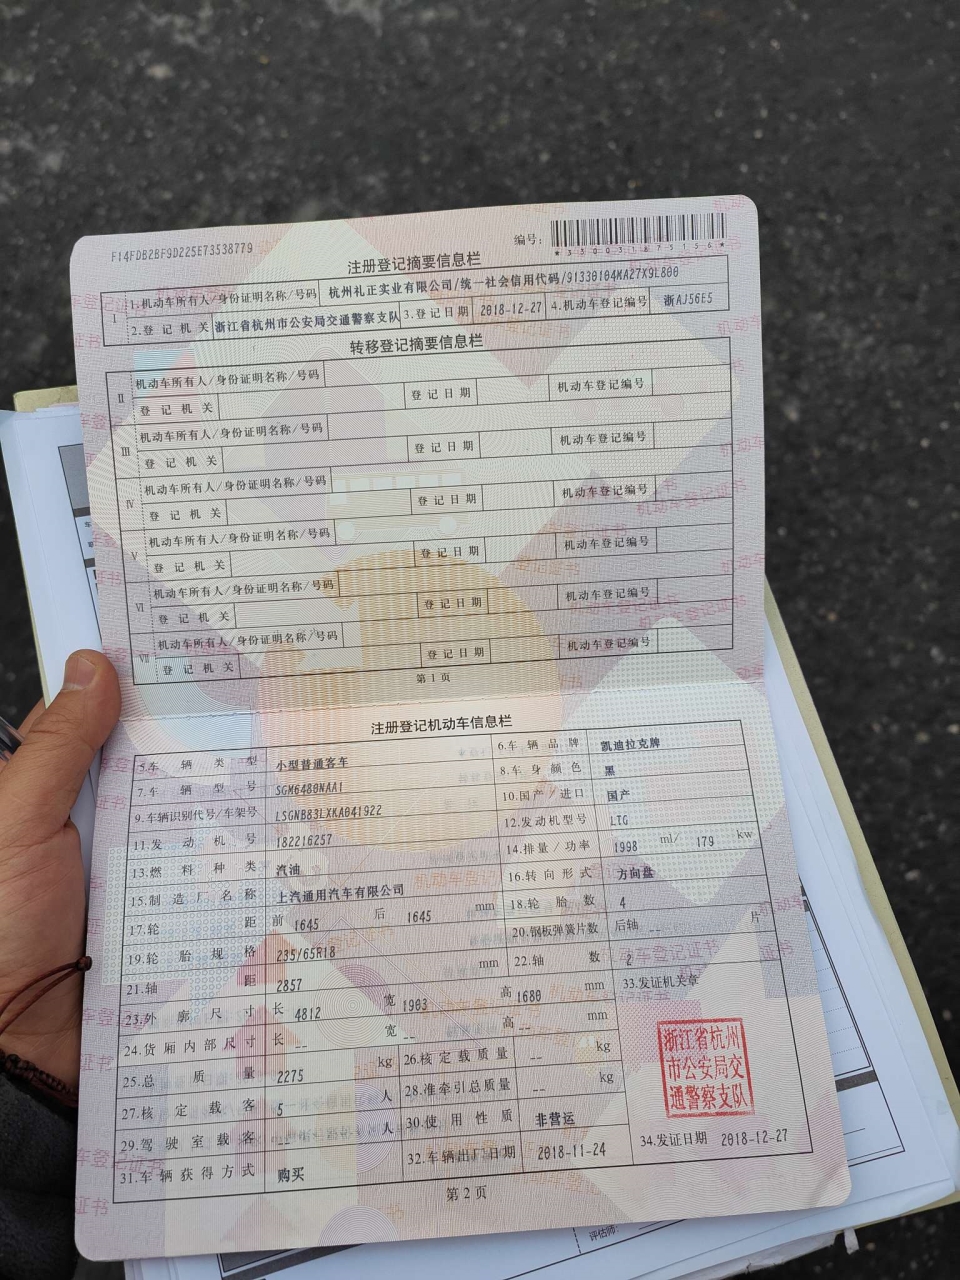 F14FDB2BF9D225E73538779
编号:
*330031873156*
注册登记摘要信息栏
Ⅰ 1.机动车所有人/身份证明名称/号码 杭州礼正实业有限公司/统一社会信用代码/91330104MA27X9L800
2.登记机关 浙江省杭州市公安局交通警察支队 3.登记日期 2018-12-27 4.机动车登记编号 浙AJ56E5
转移登记摘要信息栏
Ⅱ 机动车所有人/身份证明名称/号码
登记机关 登记日期 机动车登记编号
Ⅲ 机动车所有人/身份证明名称/号码
登记机关 登记日期 机动车登记编号
Ⅳ 机动车所有人/身份证明名称/号码
登记机关 登记日期 机动车登记编号
Ⅴ 机动车所有人/身份证明名称/号码
登记机关 登记日期 机动车登记编号
Ⅵ 机动车所有人/身份证明名称/号码
登记机关 登记日期 机动车登记编号
Ⅶ 机动车所有人/身份证明名称/号码
登记机关 登记日期 机动车登记编号
第1页
注册登记机动车信息栏
5.车辆类型 小型普通客车 6.车辆品牌 凯迪拉克牌
7.车辆型号 SGM6480NAA1 8.车身颜色 黑
9.车辆识别代号/车架号 LSGNB83LXKA041922 10.国产/进口 国产
11.发动机号 182216257 12.发动机型号 LTG
13.燃料种类 汽油 14.排量/功率 1998 ml/ 179 kw
15.制造厂名称 上汽通用汽车有限公司 16.转向形式 方向盘
17.轮距 前 1645 后 1645 mm 18.轮胎数 4
19.轮胎规格 235/65R18 20.钢板弹簧片数 后轴 -- 片
21.轴距 2857 mm 22.轴数 2
23.外廓尺寸 长 4812 宽 1903 高 1680 mm 33.发证机关章
24.货厢内部尺寸 长 -- 宽 -- 高 -- mm
25.总质量 2275 kg 26.核定载质量 -- kg
27.核定载客 5 人 28.准牵引总质量 -- kg
29.驾驶室载客 -- 人 30.使用性质 非营运
31.车辆获得方式 购买 32.车辆出厂日期 2018-11-24 34.发证日期 2018-12-27
浙江省杭州
市公安局交
通警察支队
第2页
评估师: